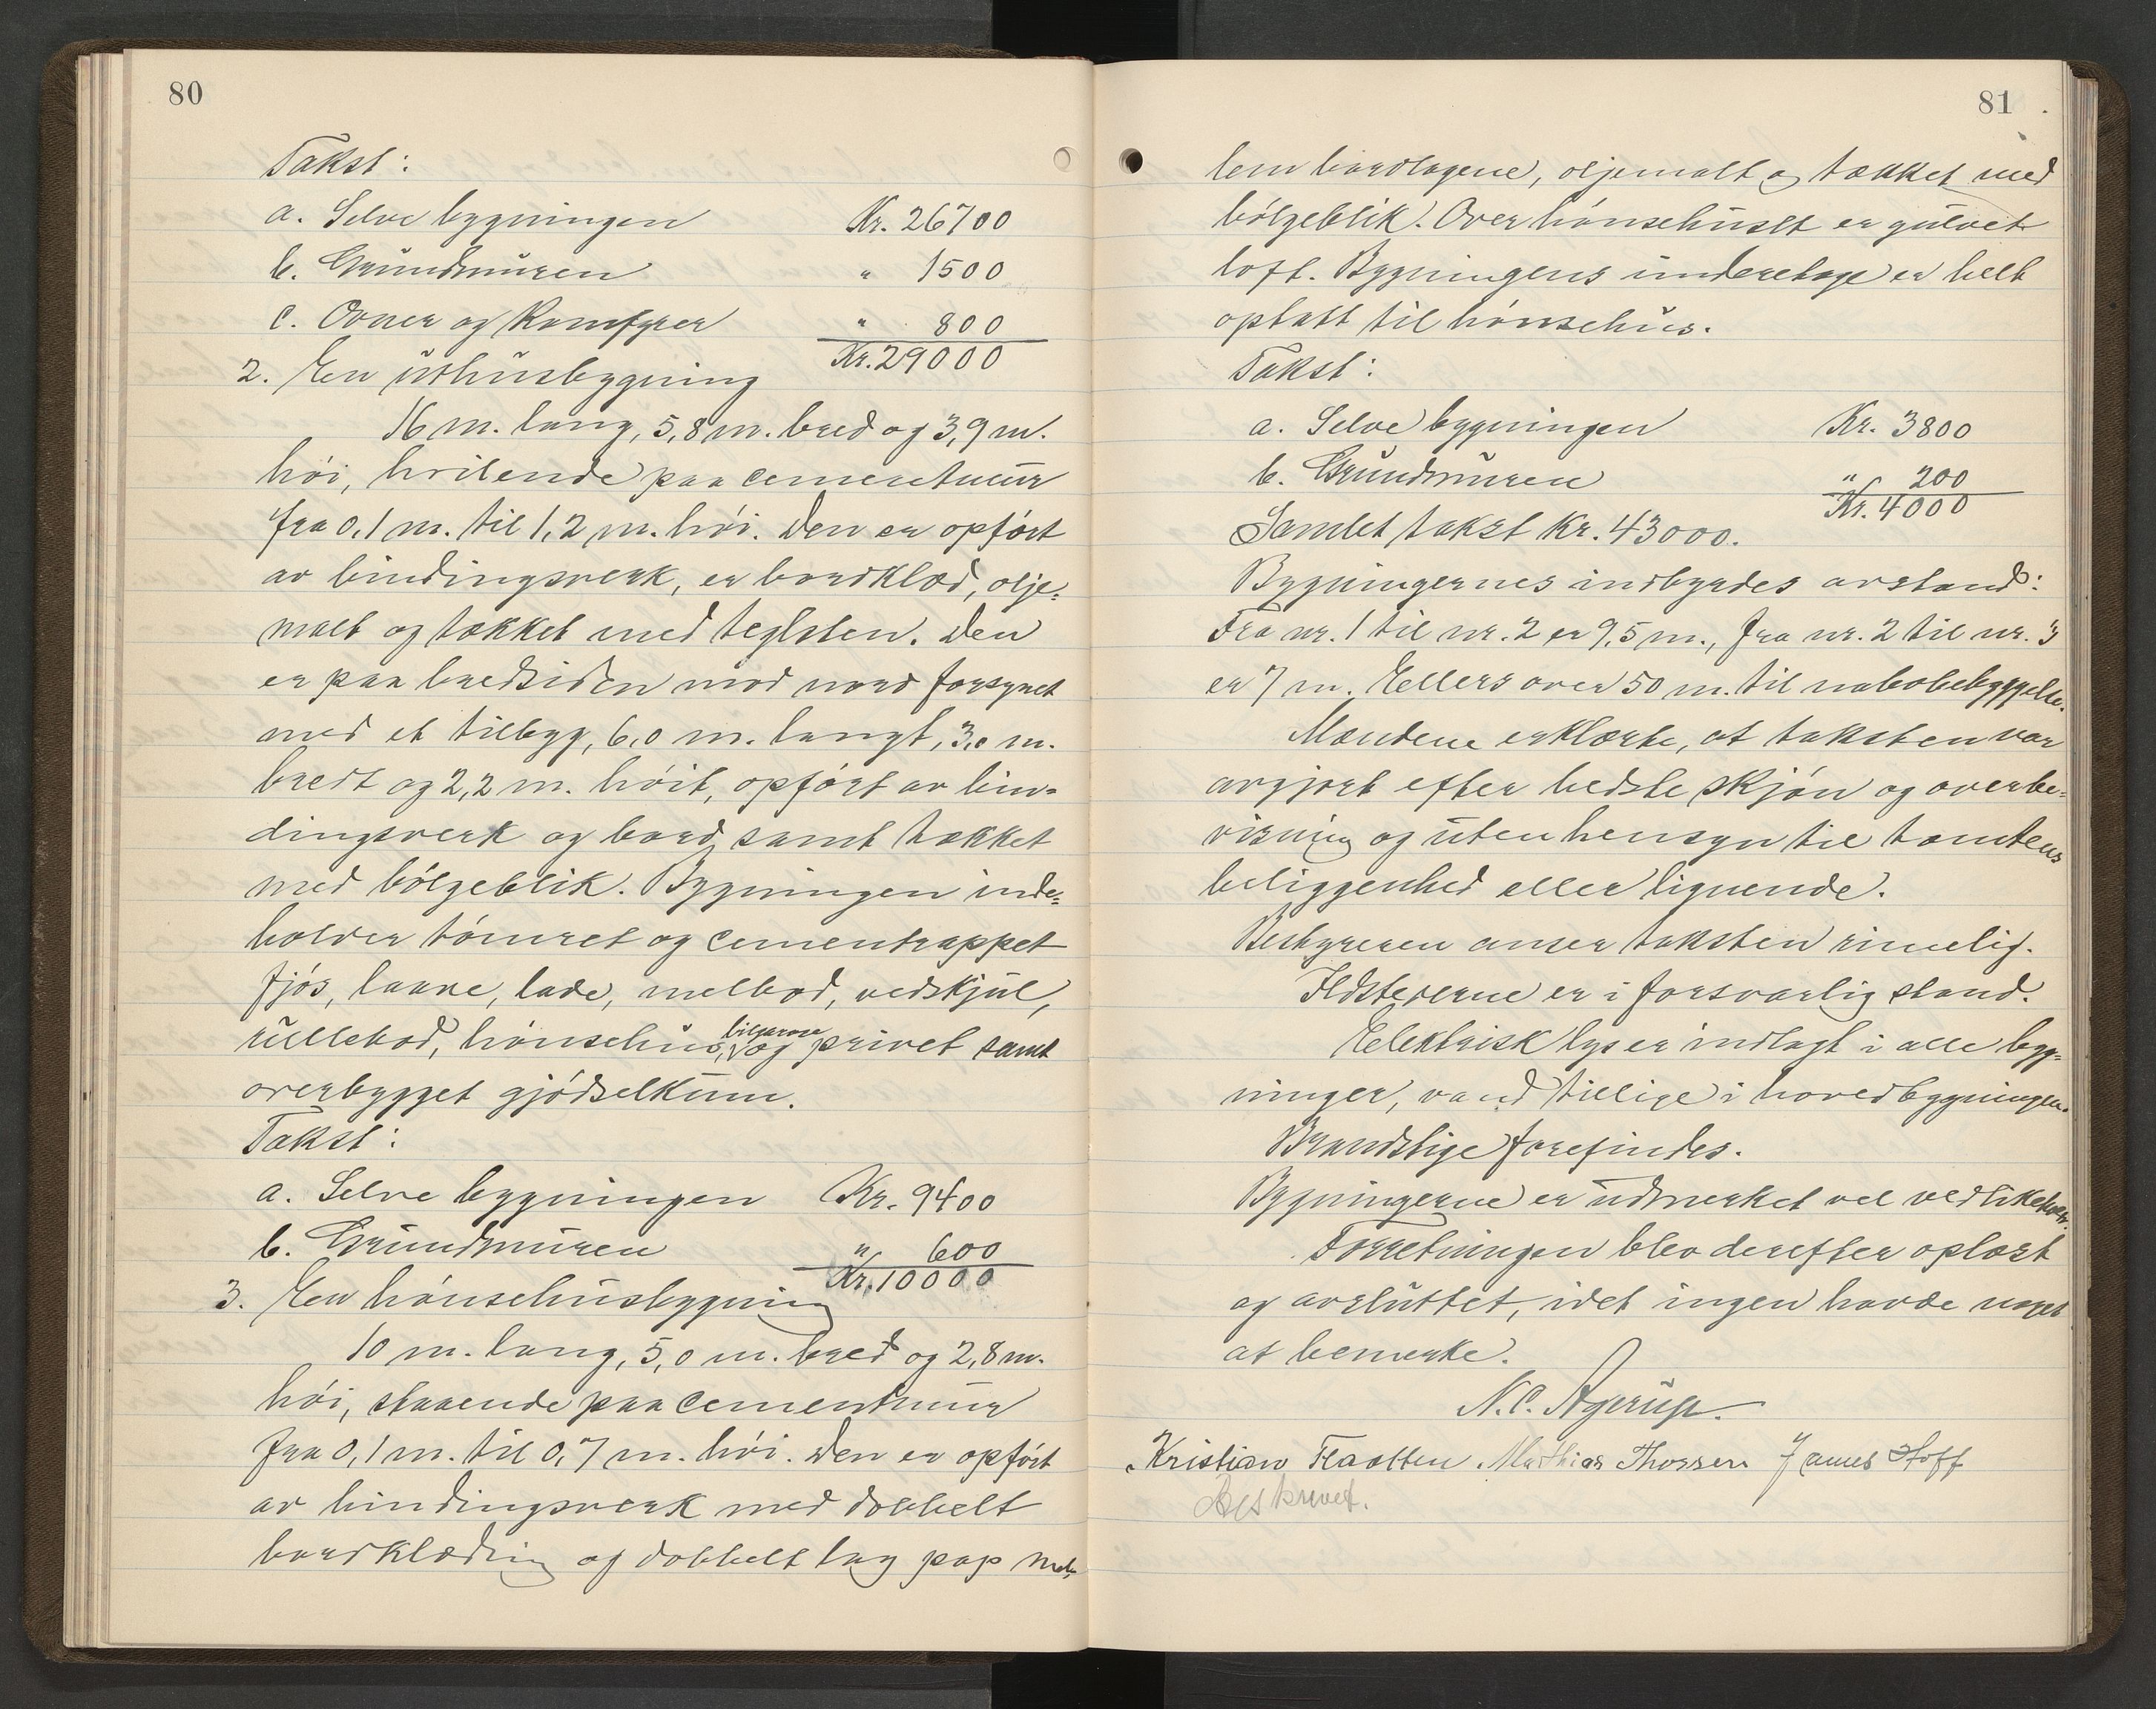 80
Takst:
a. Selve bygningen Kr. 26700
b. Grundmuren " 1500
c. Ovner og Komfyrer " 800
Kr. 29000
2. En uthusbygning
16 m. lang, 5,8 m. bred og 3,9 m.
høi, hvilende paa cementmur
fra 0,1 m. til 1,2 m. høi. Den er opført
av bindingsverk, er bordklæd, olje-
malt og tækket med teglsten. Den
er paa bredsiden mod nord forsynet
med et tilbygg, 6,0 m. langt, 3,0 m.
bredt og 2,2 m. høit, opført av bin-
dingsverk og bord, samt tækket
med bølgeblik. Bygningen inde-
holder tømret og cementrappet
fjøs, laave, lade, melbod, vedskjul,
rullebod, hønsehus, bilgarage og privet samt
overbygget gjødselkum.
Takst:
a. Selve bygningen Kr. 9400
b. Grundmuren " 600
Kr. 10000
3. En hønsehusbygning
10 m. lang, 5,0 m. bred og 2,8 m.
høi, staaende paa cementmur
fra 0,1 m. til 0,7 m. høi. Den er opført
av bindingsverk med dobbelt
bordklædning og dobbelt lag pap mel-
81
lem bordlagene, oljemalt og tækket med
bølgeblik. Over hønsehuset er gulvet
loft. Bygningens underetage er helt
optatt til hønsehus.
Takst:
a. Selve bygningen Kr. 3800
b. Grundmuren " 200
Kr. 4000
Samlet takst Kr. 43000.
Bygningernes indbyrdes avstand:
Fra nr. 1 til nr. 2 er 9,5 m., fra nr. 2 til nr. 3
er 7 m. Ellers over 50 m. til nabobebyggelse.
Mændene erklærte, at taksten var
avgjort efter bedste skjøn og overbe-
visning og uten hensyn til tomtens
beliggenhed eller lignende.
Bestyreren anser taksten rimelig.
Ildstederne er i forsvarlig stand.
Elektrisk lys er indlagt i alle byg-
ninger, vand tillige i hovedbygningen.
Brandstige forefindes.
Bygningerne er udmerket vel vedlikeholdt.
Forretningen blev derefter oplæst
og avsluttet, idet ingen havde noget
at bemerke.
N. C. Agerup.
Kristian Flaatten Mathias Thorsen James Hoff
Beskrevet.